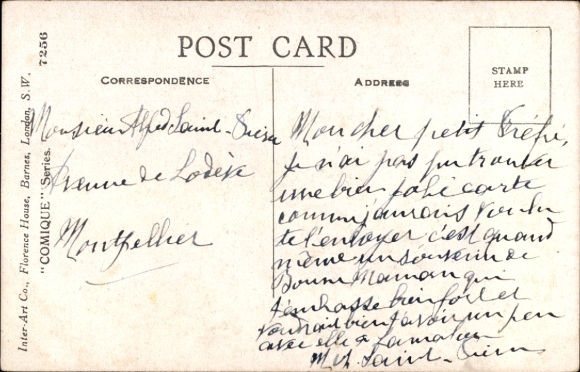 POST CARD
CORRESPONDENCE
ADDRESS
STAMP
HERE
Inter-Art Co., Florence House, Barnes, London, S.W.
"COMIQUE" Series. 7256
Monsieur Alfred Saint-Pierre
Avenue de Lodève
Montpellier
Mon cher petit
je n'ai pas pu trouver
une bien jolie carte
comme j'aurais voulu
te l'envoyer c'est quand
même un souvenir de
Bonne Maman qui
t'embrasse bien fort et
voudrait bien t'avoir un peu
avec elle à
M Saint-Pierre